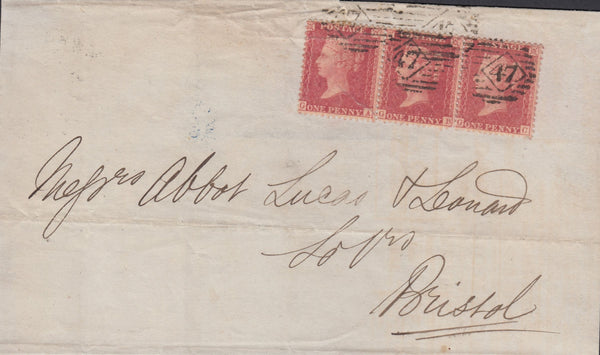 POSTAGE
ONE PENNY ONE PENNY ONE PENNY
47 47
Messrs Abbot Lucas & Leonard
Solrs
Bristol